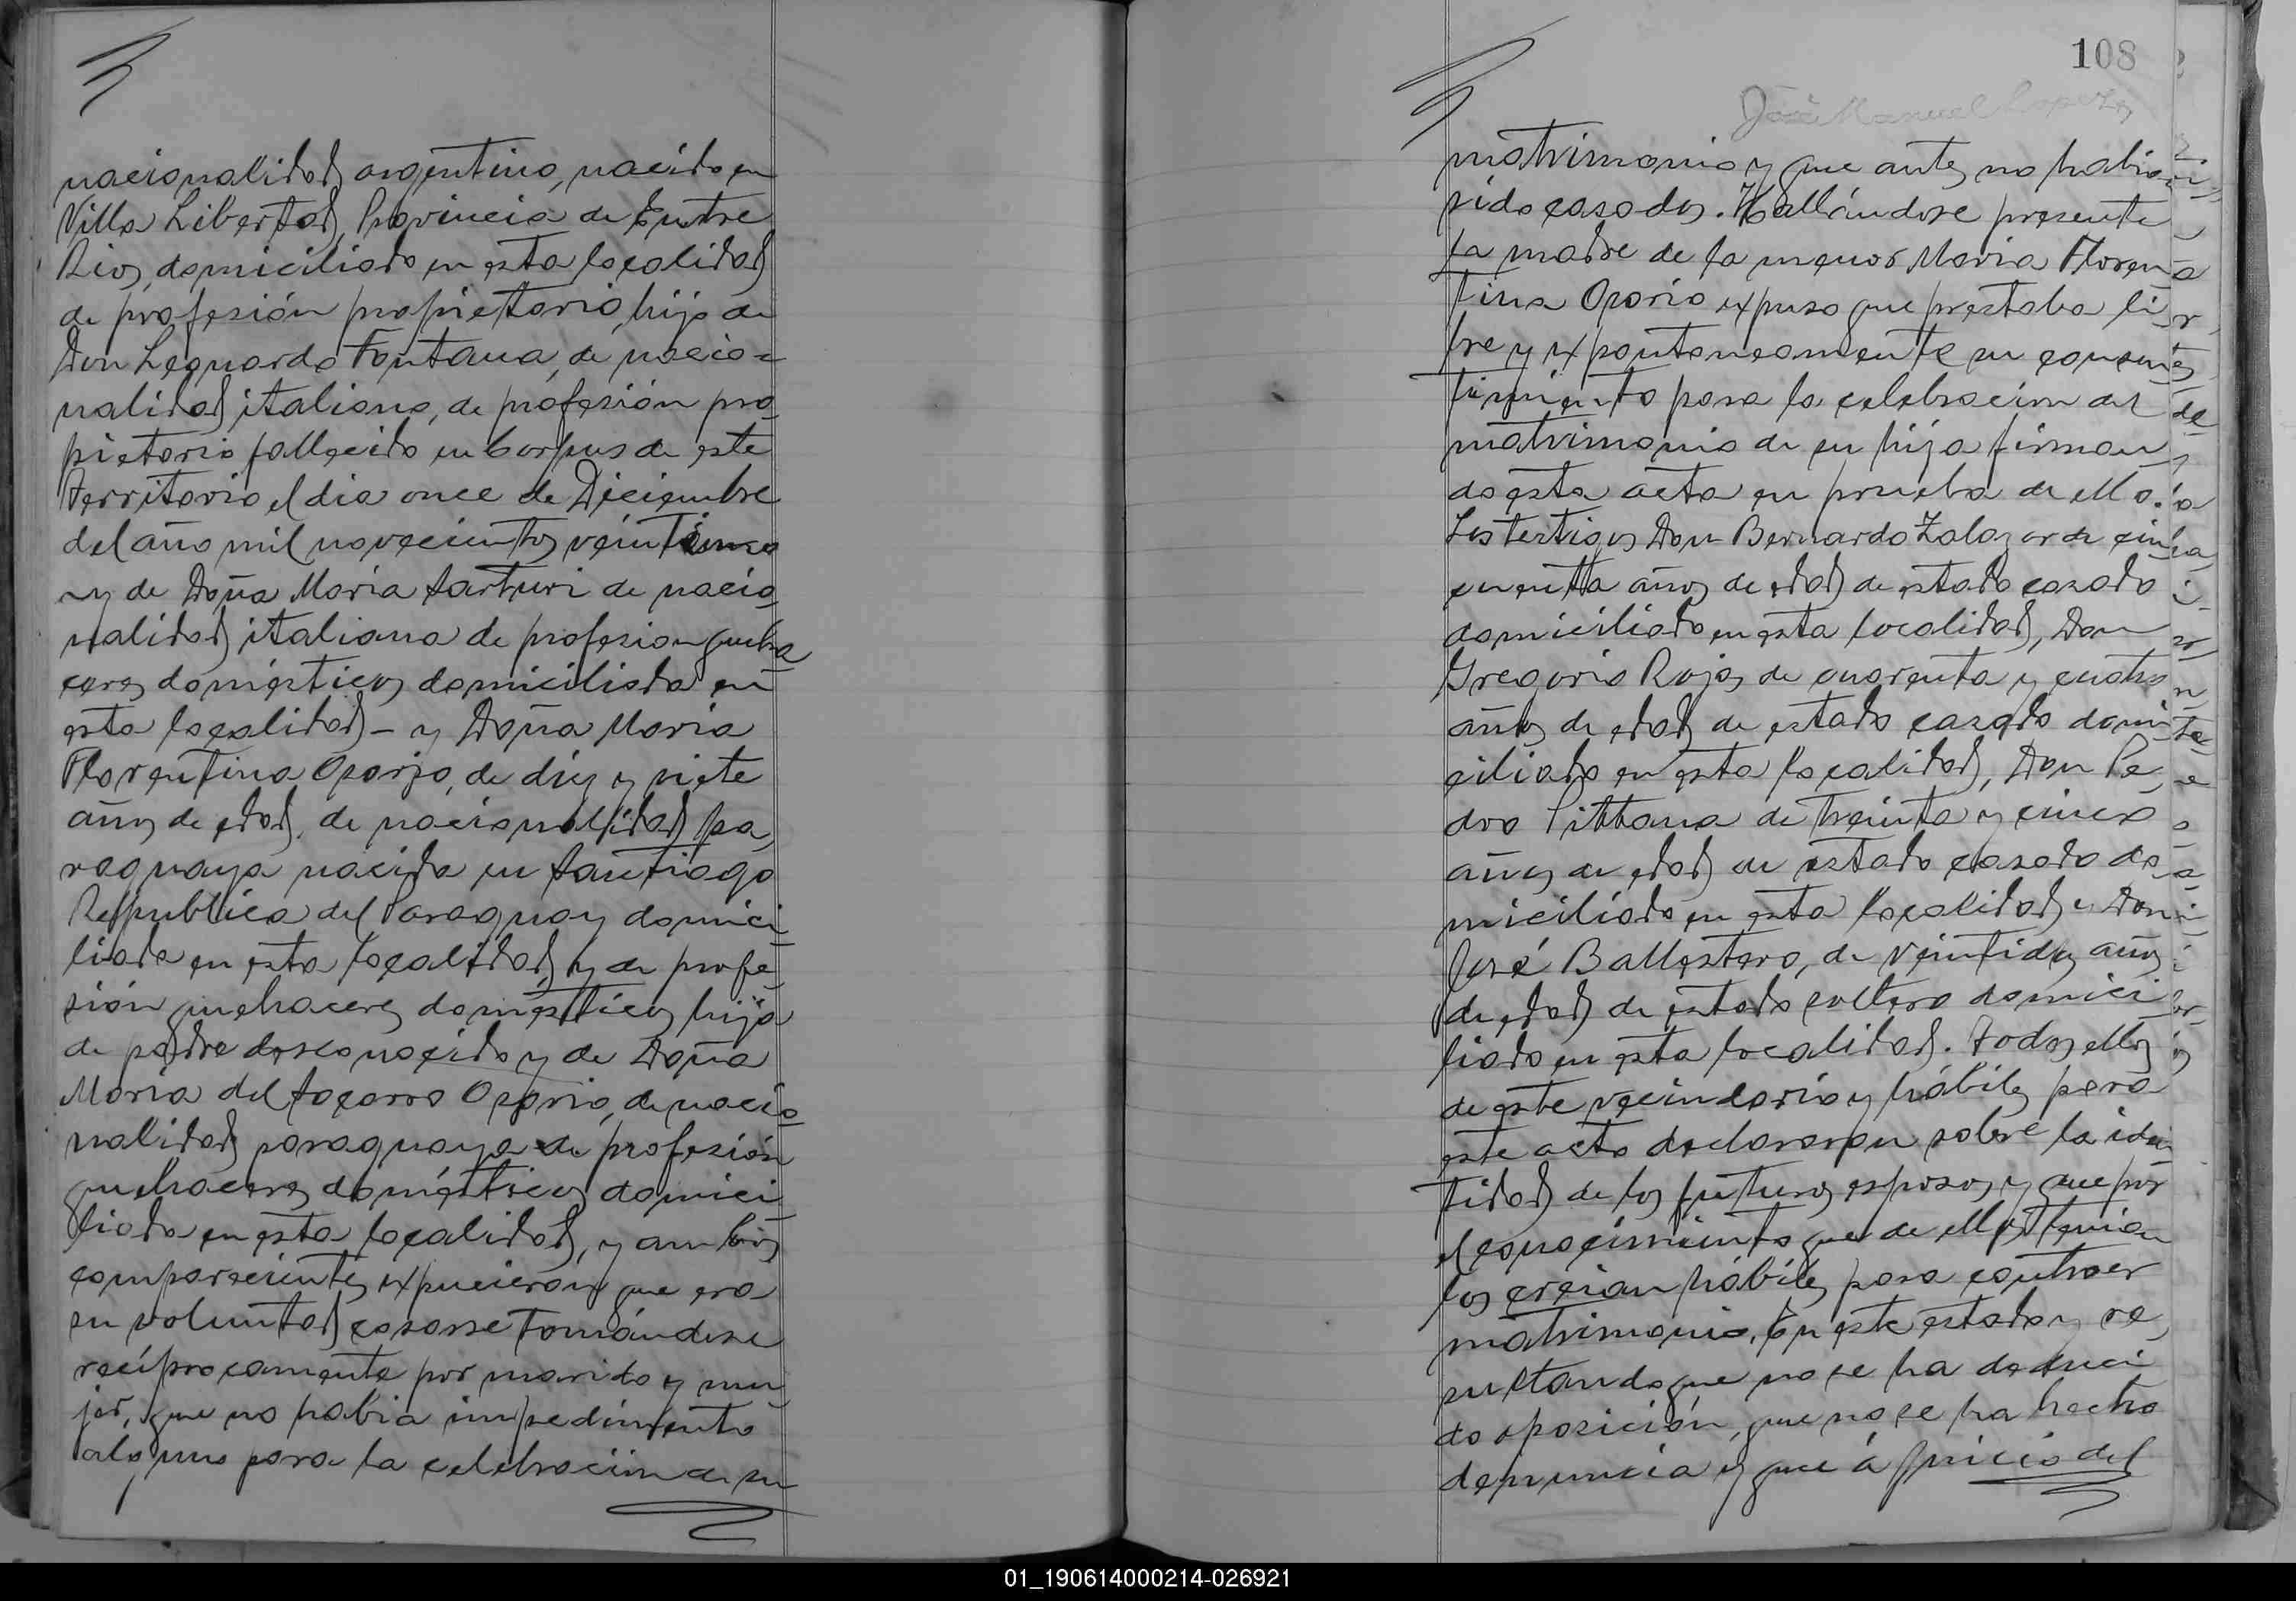 nacionalidad argentino, nacido en
Villa Libertad, Provincia de Entre
Rios, domiciliado en esta localidad
de profesión propietario, hijo de
Don Leonardo Fontana, de nacio=
nalidad italiano, de profesión pro
pietario fallecido en Corpus de este
Territorio el dia once de Diciembre
del año mil novecientos
y de Doña Maria Sarturi de nacio
nalidad italiana de profesion queha
ceres domésticos domiciliada en
esta localidad - y Doña Maria
Florentina Osorio, de diez y siete
años de edad, de nacionalidad pa
raguaya nacida en Santiago
Republica del Paraguay domici
liada en esta localidad y de profe
sión quehaceres domésticos hija
de padre desconocido y de Doña
Maria del Socorro Osorio, de nacio
nalidad paraguaya de profesión
quehaceres domésticos domici
liada en esta localidad, y ambos
comparecientes expucieron que era
su voluntad casarse tomándose
recíprocamente por marido y mu
jer, que no habia impedimento
alguno para la celebración de su
108
José Manuel Lopez
matrimonio y que antes no habian
sido casados. Hallándose presente
la madre de la menor Maria Floren
tina Osorio expuso que prestaba li
bre y expontaneamente su consen
timiento para la celebracion del
matrimonio de su hija firman
do esta acta en prueba de ello.
Los testigos Don Bernardo Zalazar de cin
cuenta años de edad de estado casado
domiciliado en esta localidad, Don
Gregorio Rojas de cuarenta y cuatro
años de edad de estado casado domi
ciliado en esta localidad, Don Pe
dro Pittana de treinta y cinco
años de edad de estado casado do
miciliado en esta localidad y Don
José Ballestero, de veintidos años
de edad de estado soltero domici
liado en esta localidad. Todos ellos
de este vecindario y hábiles para
este acto declararon sobre la iden
tidad de los futuros esposos y que por
el conocimiento que de ellos tenian
los creian hábiles para contraer
matrimonio. En este estado y re
sultando que no se ha deduci
do oposición, que no se ha hecho
denuncia y que á juicio del
01_190614000214-026921